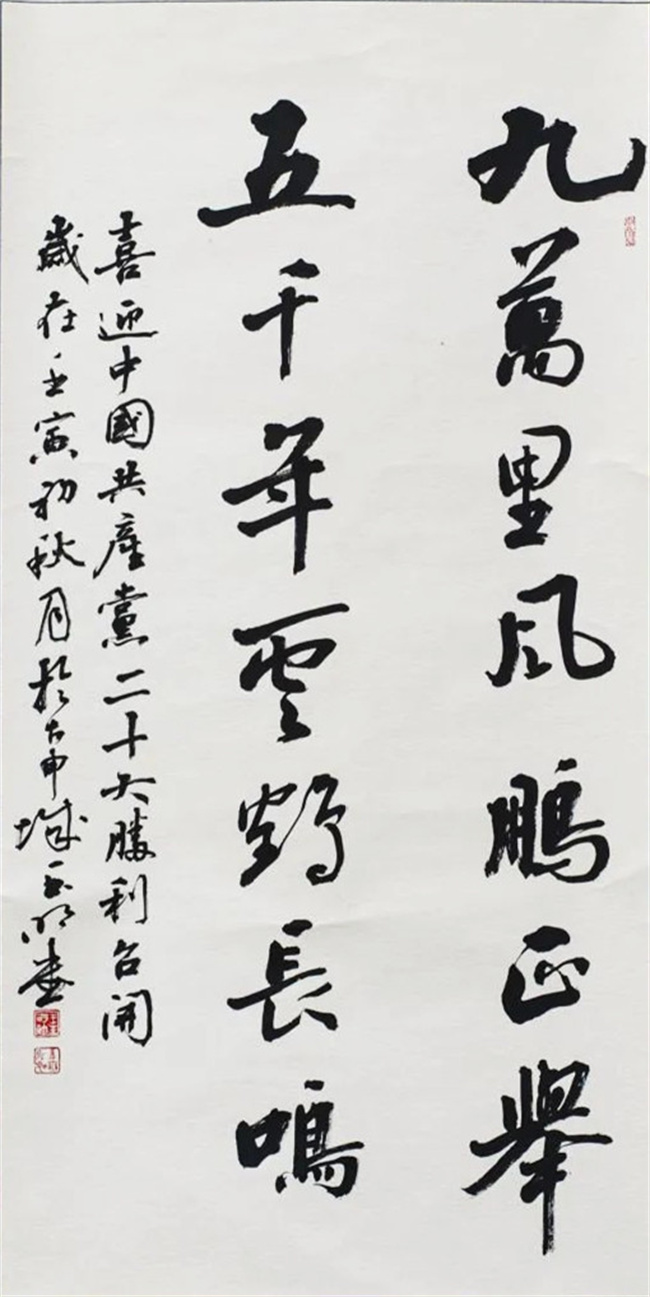 九萬里风鹏正舉
五千年雲鹤長鳴
喜迎中國共產黨二十大勝利召開
歲在壬寅初秋月於古申城玉明書